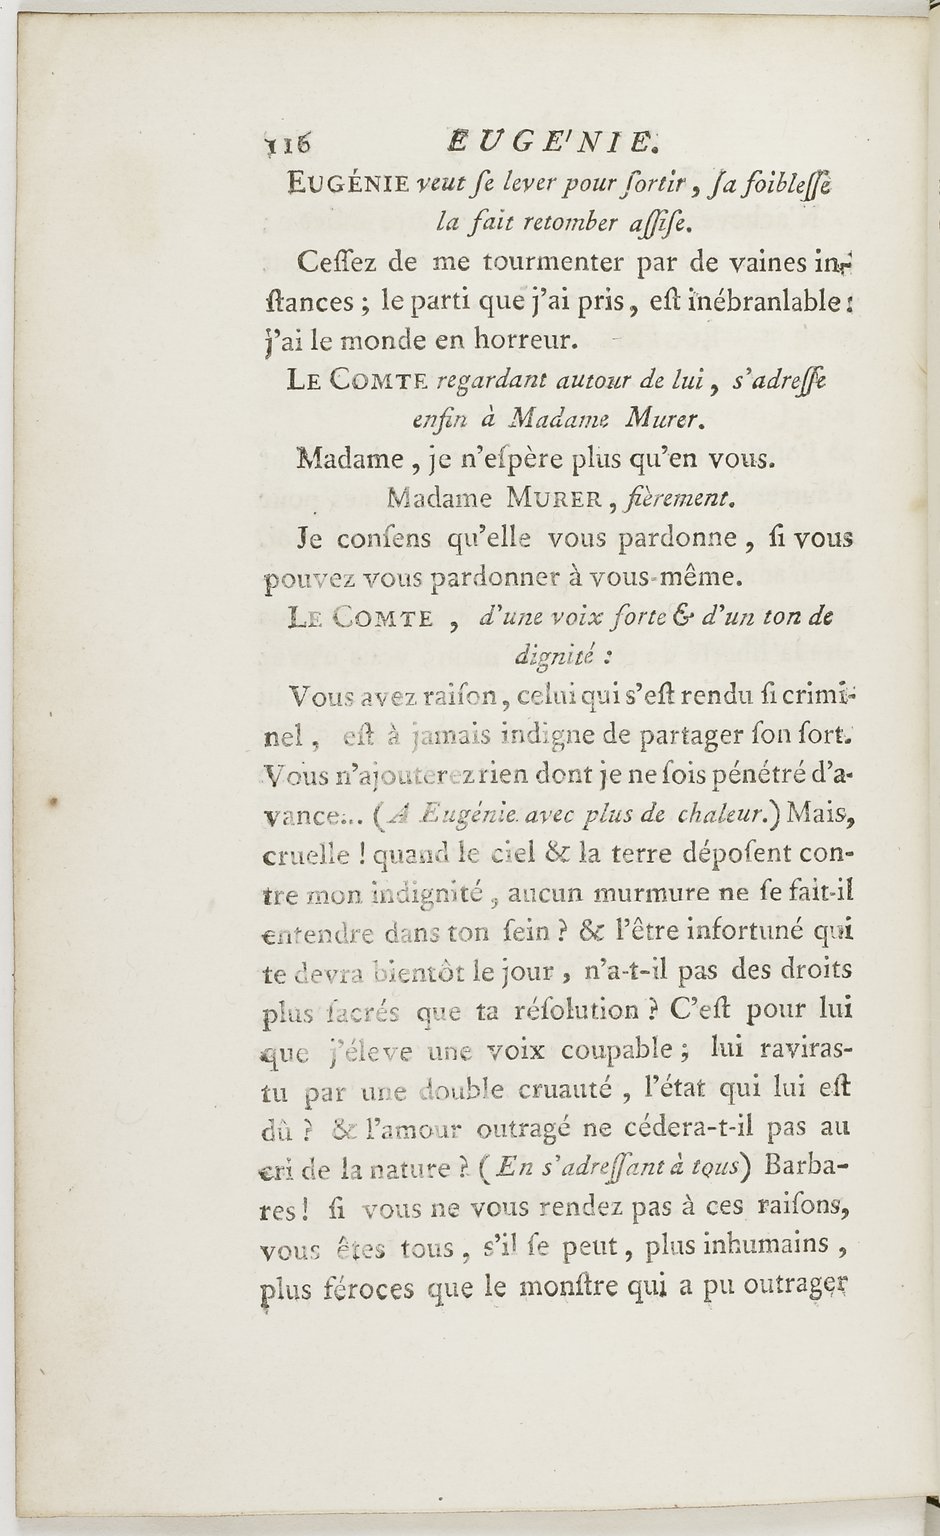 116 EUGE'NIE.
EUGÉNIE veut ſe lever pour ſortir, ſa foibleſſe
la fait retomber aſſiſe.
Ceſſez de me tourmenter par de vaines in-
ſtances ; le parti que j'ai pris, eſt inébranlable :
j'ai le monde en horreur.
LE COMTE regardant autour de lui, s'adreſſe
enfin à Madame Murer.
Madame, je n'eſpère plus qu'en vous.
Madame MURER, fièrement.
Je conſens qu'elle vous pardonne, ſi vous
pouvez vous pardonner à vous-même.
LE COMTE, d'une voix forte & d'un ton de
dignité :
Vous avez raiſon, celui qui s'eſt rendu ſi crimi-
nel, eſt à jamais indigne de partager ſon ſort.
Vous n'ajouterez rien dont je ne ſois pénétré d'a-
vance... (A Eugénie avec plus de chaleur.) Mais,
cruelle ! quand le ciel & la terre dépoſent con-
tre mon indignité, aucun murmure ne ſe fait-il
entendre dans ton ſein ? & l'être infortuné qui
te devra bientôt le jour, n'a-t-il pas des droits
plus ſacrés que ta réſolution ? C'eſt pour lui
que j'éleve une voix coupable ; lui raviras-
tu par une double cruauté, l'état qui lui eſt
dû ? & l'amour outragé ne cédera-t-il pas au
cri de la nature ? (En s'adreſſant à tous) Barba-
res ! ſi vous ne vous rendez pas à ces raiſons,
vous êtes tous, s'il ſe peut, plus inhumains,
plus féroces que le monſtre qui a pu outrager